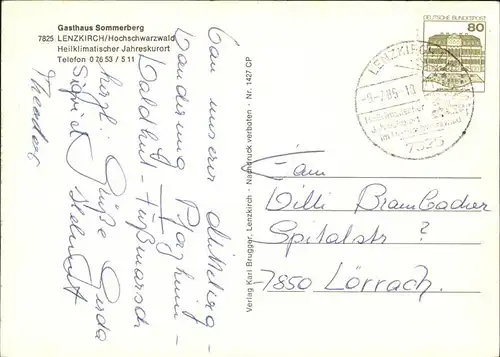 Gasthaus Sommerberg
7825 LENZKIRCH/Hochschwarzwald
Heilklimatischer Jahreskurort
Telefon 0 76 53 / 5 11
Von unserer
Wanderung
Waldhut - Fußmarsch
herzl. Grüße Gerda
Sigfrid Helmut
Theodor
Verlag Karl Brugger, Lenzkirch · Nachdruck verboten · Nr. 1427 CP
DEUTSCHE BUNDESPOST
80
LENZKIRCH
-9-7.85-18
Heilklimatischer
Jahreskurort
im Hochschwarzwald
7825
Fam
Willi Brombacher
Spitalstr ?
7850 Lörrach.